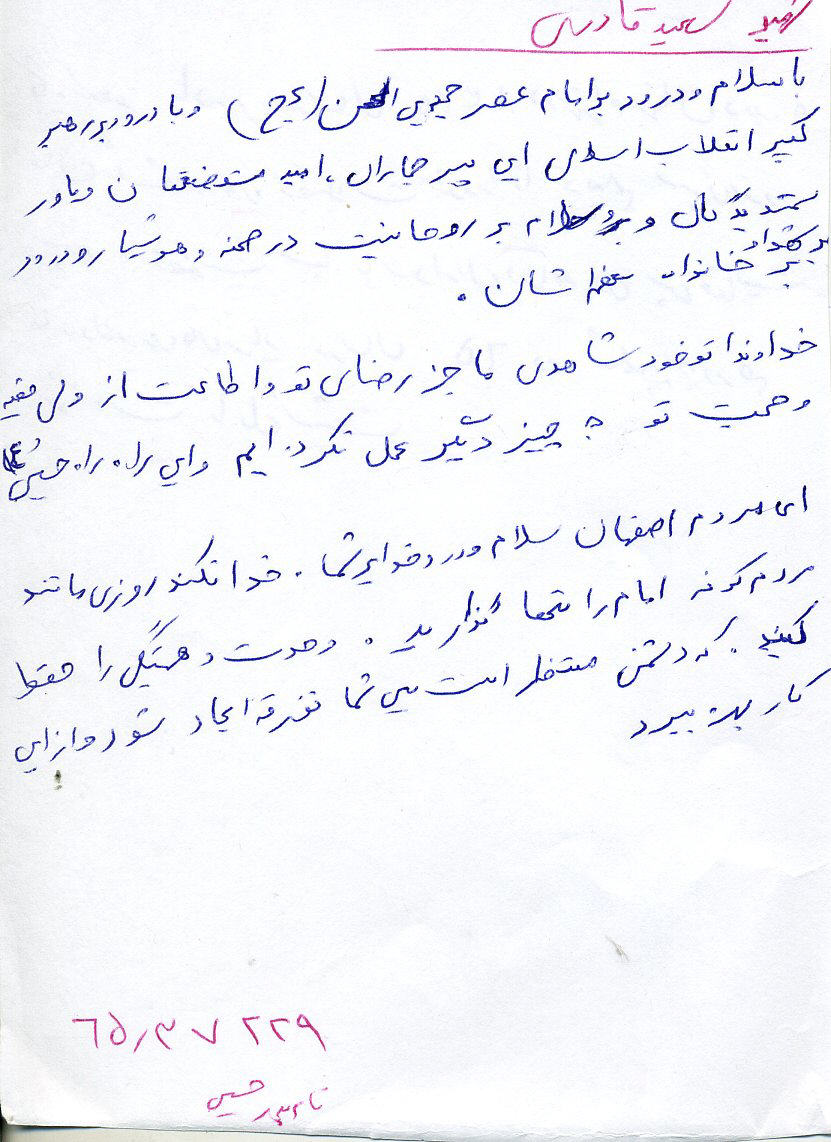 شهید سعید قادری
با سلام و درود بر امام عصر حجة بن الحسن (عج) و با درود بر رهبر
کبیر انقلاب اسلامی این پیر جماران، امید مستضعفان و یاور
ستمدیدگان و سلام بر روحانیت در صحنه و هوشیار و درود
بر شهداء
بر خانواده معظم شان.
خداوندا تو خود شاهدی ما جز رضای تو و اطاعت از ولی فقیه
و حجت تو به چیز دیگر عمل نکرده ایم و این راه، راه حسین (ع)
ای مردم اصفهان سلام و درود خدا بر شما. خدا نکند روزی مانند
مردم کوفه امام را تنها گذارید. وحدت و همبستگی را حفظ
کنید. که دشمن منتظر است بین شما تفرقه ایجاد شود و از این
کار بهره ببرد
٦٥،٣٧ ٢٢٩
حسین